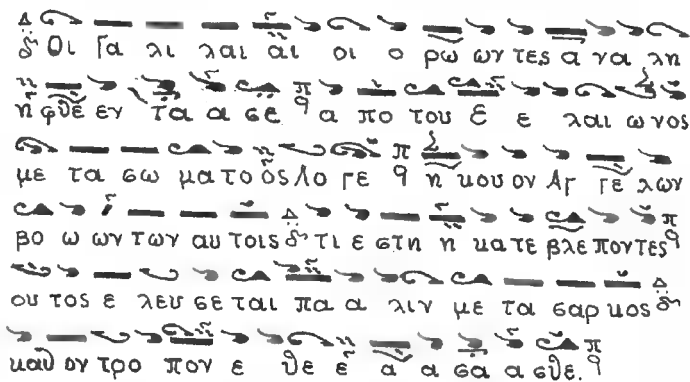 Οι Γα λι λαι αι οι ο ρω ων τες α να λη
η φθε εν τα α α σε α πο του Ε ε λαι ω νος
με τα σω μα το ος Λο γε η κου ον Αγ γε λων
βο ω ων των αυ τοις τι ε στη η κα τε βλε πον τες
ου τος ε λευ σε ται πα α λιν με τα σαρ κος
καθ ον τρο πον ε θε ε α α σα α σθε.